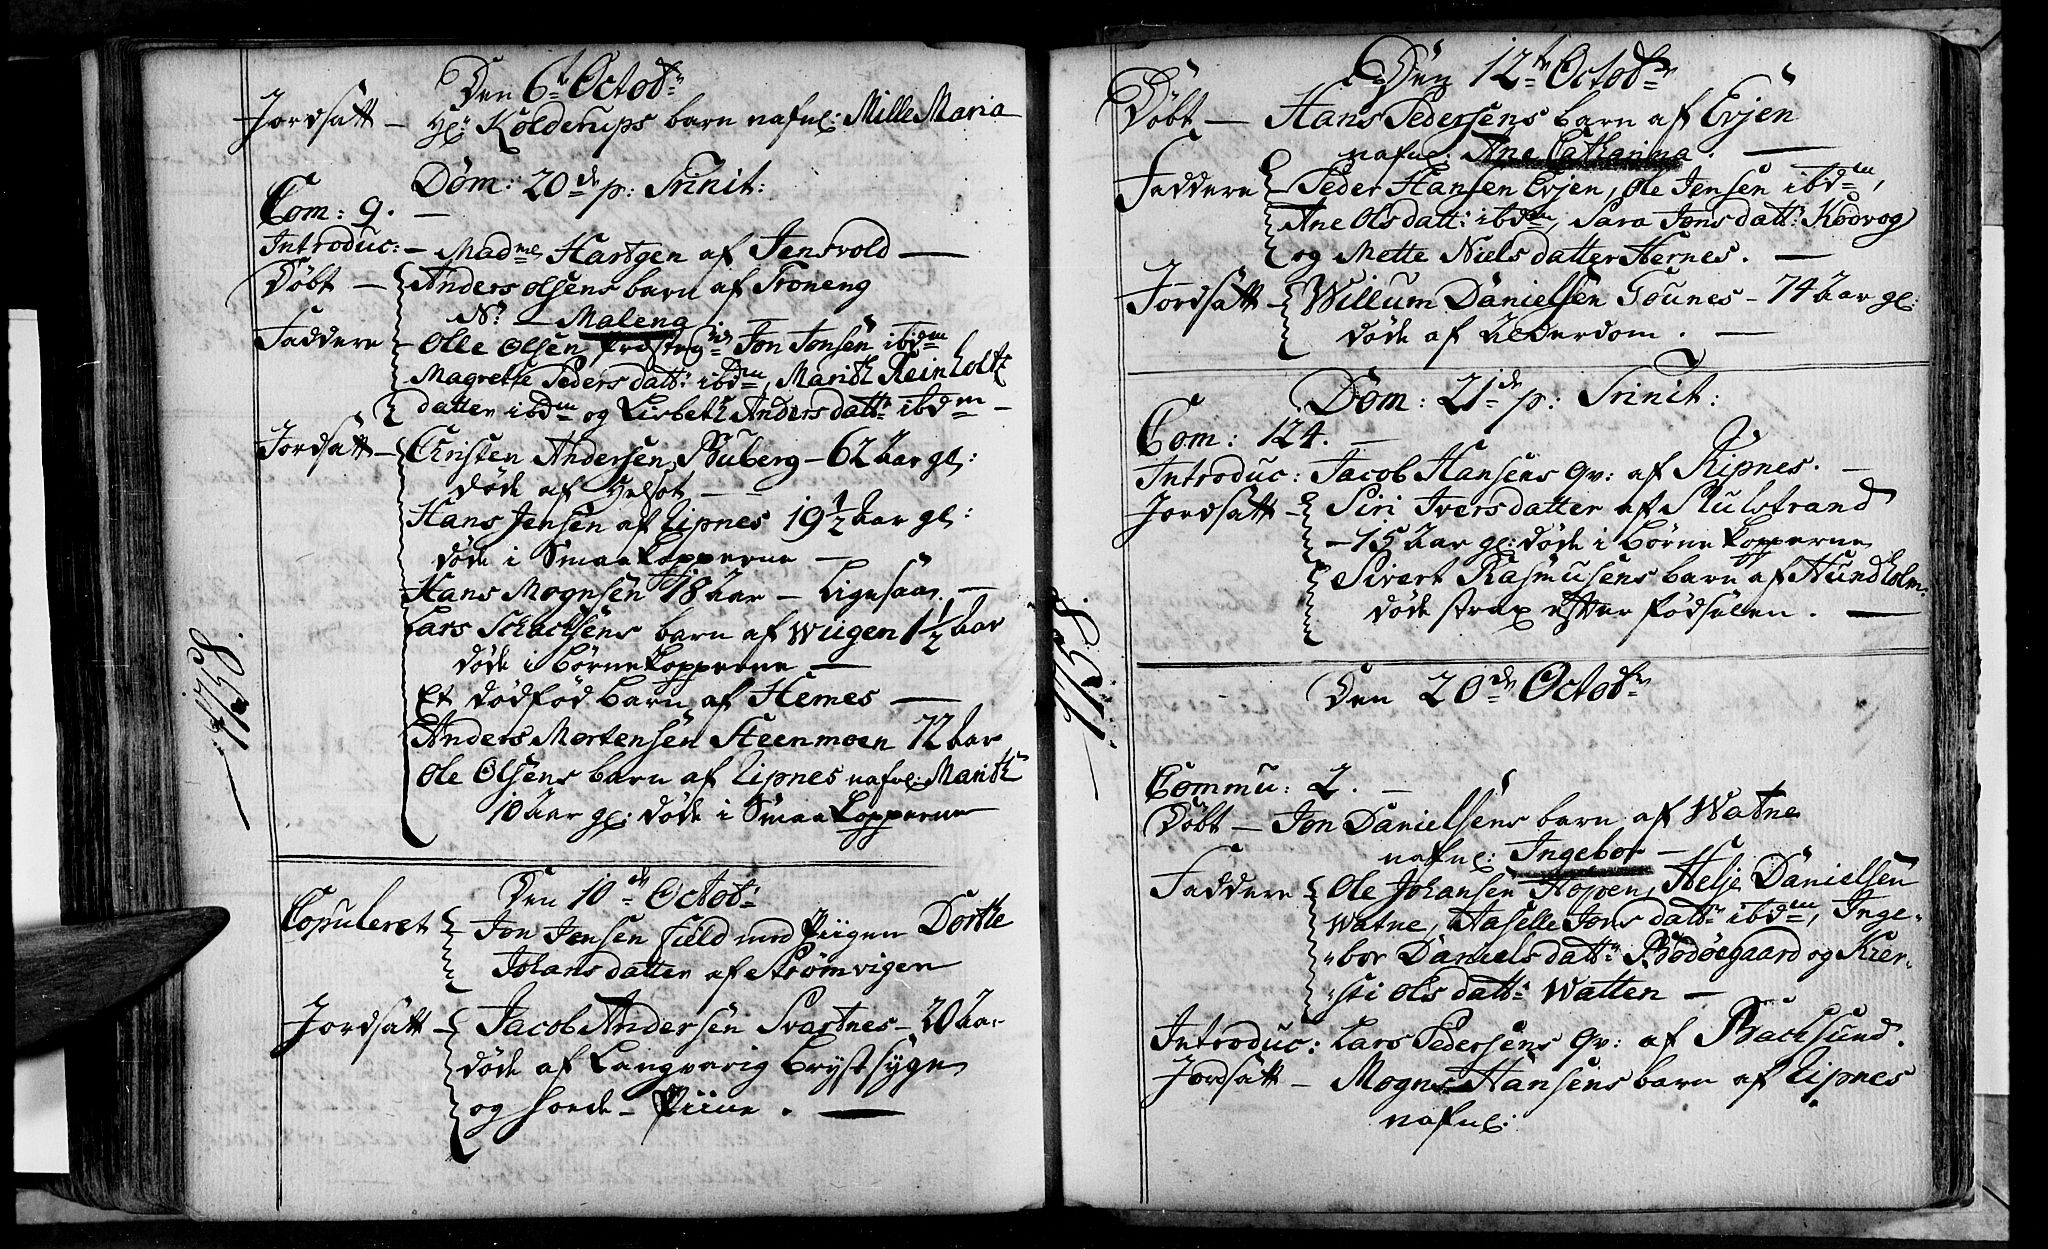 Den 6te Octobr
Jordsatt – Hr: Kolderups barn nafnl: Mille Maria
Dom: 20de p: Trinit:
Com: 9. –
Introduc: – Madme Hartgen af Jensvold –
Döbt – Anders Olsens barn af Troneng
No – Maleng
Faddere – Olle Olsen Præsteg, Jon Jonsen ibdm
Magrette Pedersdattr ibdm, Marith Reinholtz
datter ibdm og Lisbeth Andersdattr ibdm –
Jordsatt – Christen Andersen Buberg – 62 Aar gl:
döde af
Hans Jensen af Lipnes 19 1/2 Aar gl:
döde i Smaakopperne –
Hans Mognsen 18 Aar – Ligesaa. –
Lars Schachsens barn af Wiigen 1 1/2 Aar
döde i Börnekopperne –
Et dödföd barn af Hernes –
Anders Mortensen Steenmoen 72 Aar
Ole Olsens barn af Lipnes nafnl: Marith
10 Aar gl: döde i Smaakopperne
1758.
Den 10de Octob:
Copuleret – Jon Jensen Field med Piigen Dorthe
Johansdatter af Strömvigen
Jordsatt – Jacob Andersen Svartnes – 20 Aar
döde af Langvarig Brystsyge
og – Piine. –
Den 12te Octobr
Döbt – Hans Pedersens barn af Evjen
nafnl: Ane Catharina. –
Faddere – Peder Hansen Evjen, Ole Jensen ibdm,
Ane Olsdatt: ibdm, Sara Jonsdatt: Kodvog
og Mette Nielsdatter Hernes. –
Jordsatt – Willum Danielsen Gounes – 74 Aar gl:
döde af Alderdom. –
Dom: 21de p: Trinit:
Com: 124. –
Introduc: Jacob Hansens Qv: af Ripnes. –
Jordsatt – Siri Iversdatter af Skulstrand
– 15 Aar gl: döde i Börnekopperne
Sivert Rasmusens barn af Hundholm
döde strax efter födselen. –
1758.
Den 20de Octobr
Commu: 2. –
Döbt – Jon Danielsens barn af Watne
nafnl: Ingebor –
Faddere – Ole Johansen Hopen, Helje Danielsen
Watne, Aaselle Jonsdattr ibdm, Inge-
bor Danielsdattr: Bodöegaard og Kier-
sti Olsdattr Watten –
Introduc: Lars Pedersens Qv: af Bachsund.
Jordsatt – Mogns Hansens barn af Lipnes
nafnl: